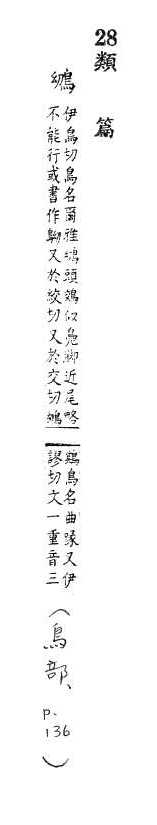 28 類篇
鴢
伊鳥切鳥名爾雅鴢頭鵁似鳧脚近尾略
不能行或書作又於絞切又於交切鴢
鷄鳥名曲喙又伊
謬切文一重音三
(鳥部、p.136)